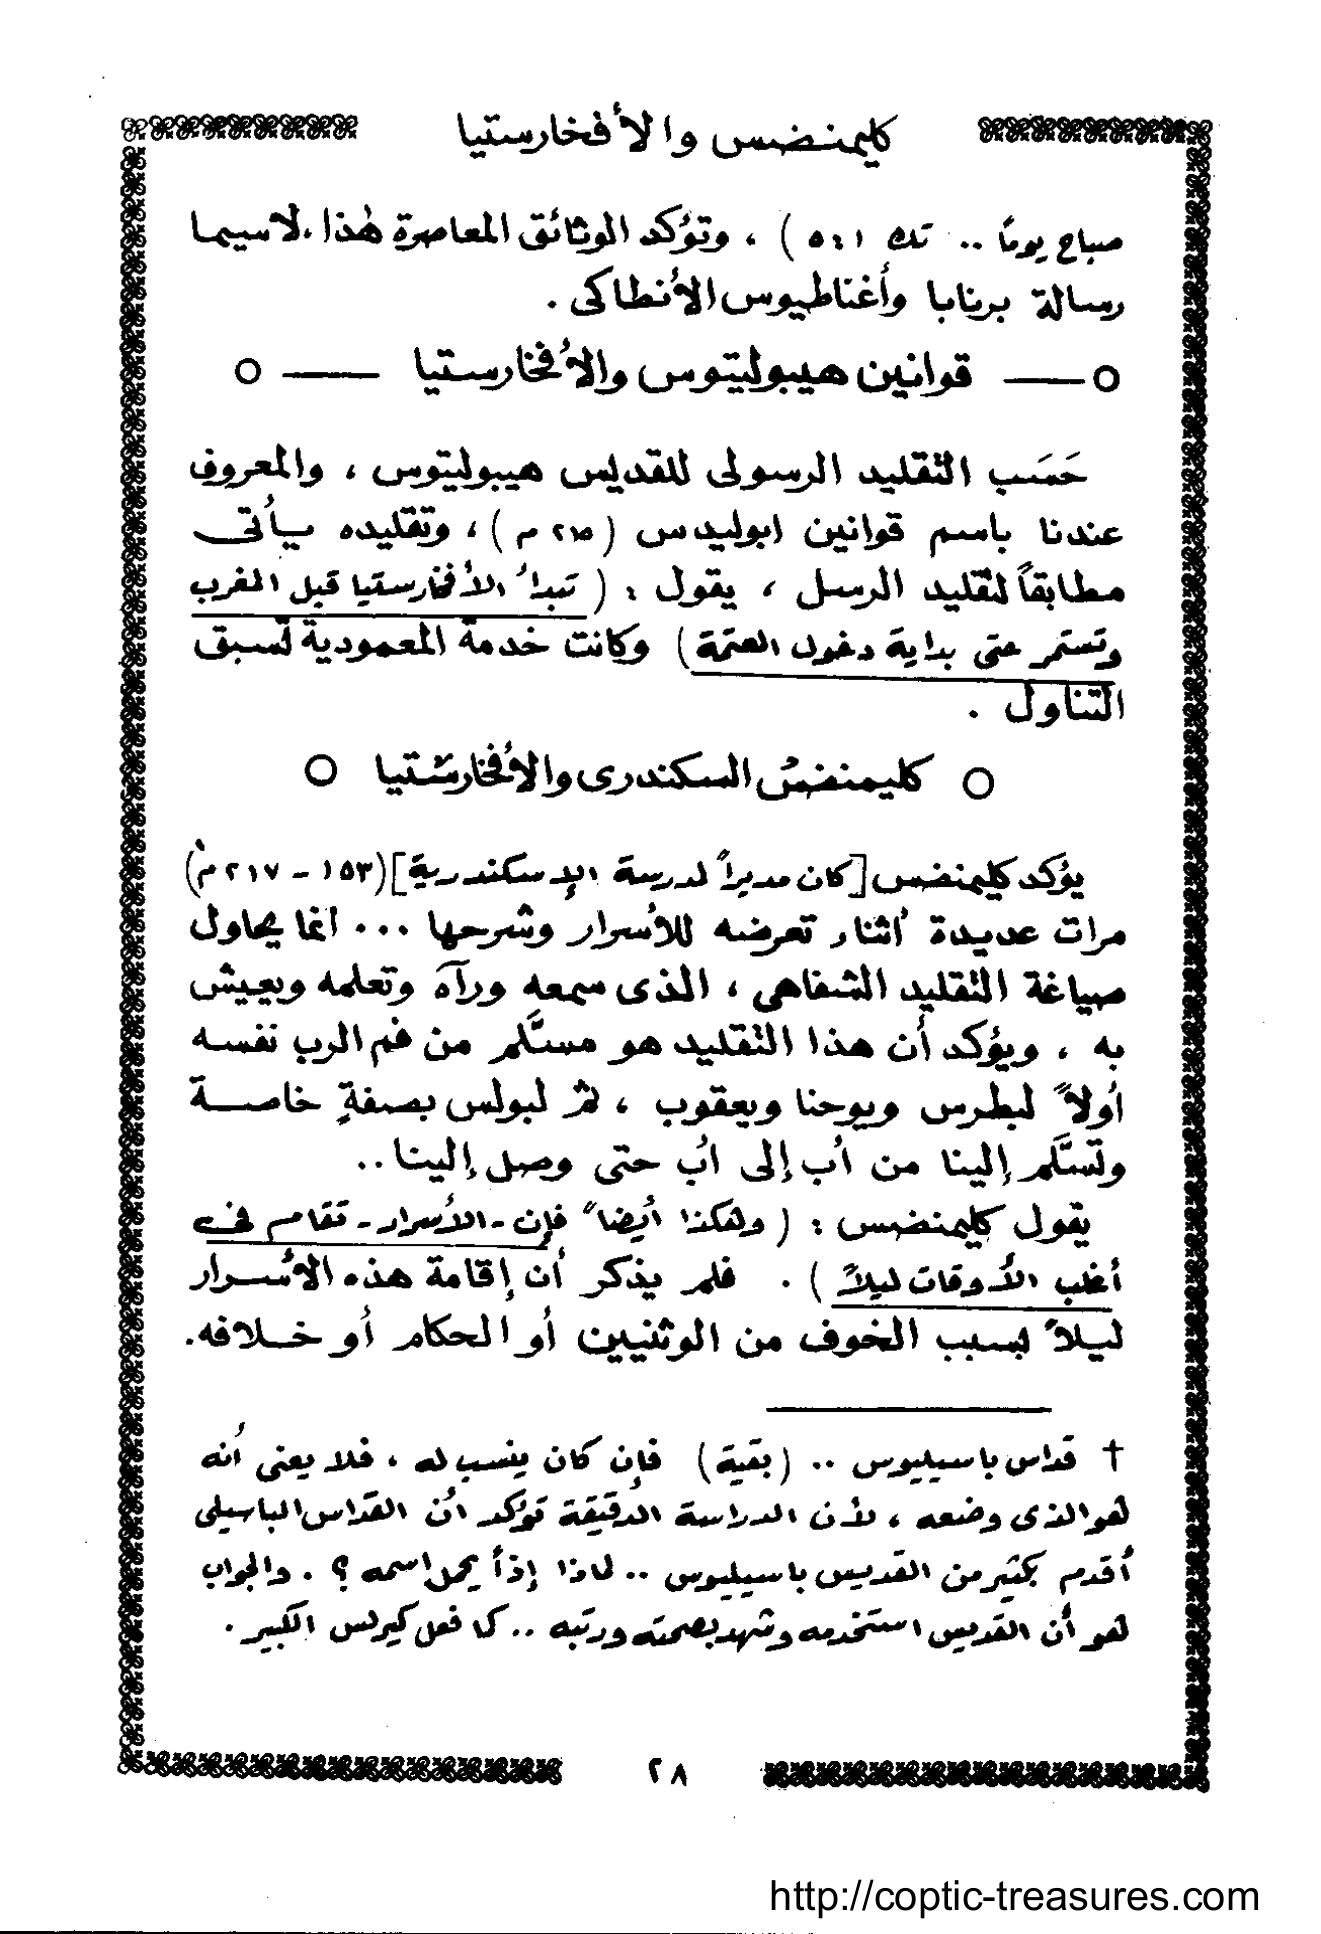 كليمنضس والأفخارستيا
صباح يوماً .. تك ١ : ٥ ) ، وتؤكد الوثائق المعاصرة هٰذا ، لاسيما
رسالة برنابا وأغناطيوس الأنطاكى .
قوانين هيبوليتوس والأفخارستيا
حَسَب التقليد الرسولى للقديس هيبوليتوس ، والمعروف
عندنا باسم قوانين ابوليدس ( ٢١٥ م ) ، وتقليده يأتى
مطابقاً لتقليد الرسل ، يقول : ( تبدأ الأفخارستيا قبل المغرب
وتستمر حتى بداية دخول العتمة ) وكانت خدمة المعمودية تسبق
التناول .
كليمنضس السكندرى والأفخارستيا
يؤكد كليمنضس [ كان مديراً لمدرسة الإسكندرية ] ( ١٥٣ - ٢١٧ م )
مرات عديدة أثناء تعرضه للأسرار وشرحها ... انما يحاول
صياغة التقليد الشفاهى ، الذى سمعه ورآه وتعلمه ويعيش
به ، ويؤكد أن هذا التقليد هو مسلَّم من فم الرب نفسه
أولاً لبطرس ويوحنا ويعقوب ، ثم لبولس بصفةٍ خاصة
وتسلَّم إلينا من أب إلى أب حتى وصل إلينا ..
يقول كليمنضس : ( وهكذا أيضاً فإن - الأسرار - تقام فى
أغلب الأوقات ليلاً ) . فلم يذكر أن إقامة هذه الأسرار
ليلاً بسبب الخوف من الوثنيين أو الحكام أو خلافه .
† قداس باسيليوس .. ( بقية ) فإن كان ينسب له ، فلا يعنى أنه
هو الذى وضعه ، لأن الدراسة الدقيقة تؤكد أن القداس الباسيلى
أقدم بكثير من القديس باسيليوس .. لماذا إذاً يحمل اسمه ؟ . والجواب
هو أن القديس استخدمه وشهد بصحته ورتبه .. كما فعل كيرلس الكبير .
٢٨
http://coptic-treasures.com